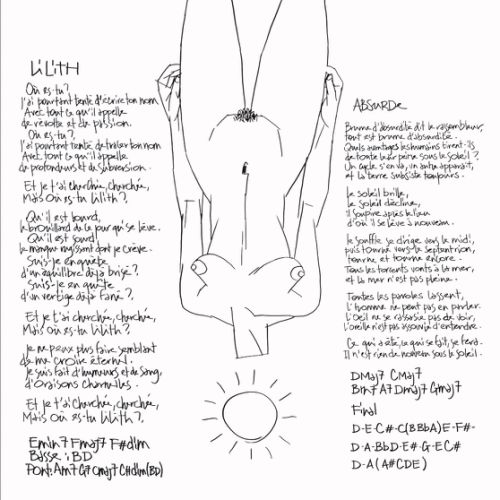 LiLiTH
Où es-tu?
J'ai pourtant tenté d'écrire ton nom
Avec tout ce qu'il appelle
de révolte et de passion.
Où es-tu?
J'ai pourtant tenté de traler ton nom
Avec tout ce qu'il appelle
de profondeurs et de subversion.
Et je t'ai cherchée, cherchée,
Mais où es-tu Lilith?
Qu'il est lourd,
le brouillard de ce jour qui se lève.
Qu'il est sourd,
le manque naissant dont je crève.
Suis-je en quête
d'un équilibre déjà brisé?
Suis-je en quête
d'un vertige déjà fané?
Et je t'ai cherchée, cherchée,
Mais où es-tu Lilith?
Je ne peux plus faire semblant
de me croire éternel.
Je suis fait d'humeurs et de sang,
d'oraisons charnelles.
Et je t'ai cherchée, cherchée,
Mais où es-tu Lilith?
Emin7 Fmaj7 F#dim
Basse : BD
Pont: Am7 G7 Cmaj7 C#dim(BD)
ABSURDe
Brume d'absurdité dit le rassembleur,
tout est brume d'absurdité.
Quels avantages les humains tirent-ils
de toute leur peine sous le soleil?
Un cycle s'en va, un autre apparaît,
et la terre subsiste toujours.
Le soleil brille,
le soleil décline,
il soupire après le lieu
d'où il se lève à nouveau.
Le souffle se dirige vers le midi,
puis tourne vers le septentrion,
tourne et tourne encore.
Tous les torrents vont à la mer,
et la mer n'est pas pleine.
Toutes les paroles lassent,
l'homme ne peut pas en parler.
L'oeil ne se rassasie pas de voir,
l'oreille n'est pas assouvie d'entendre.
Ce qui a été, ce qui se fait, se fera.
Il n'est rien de nouveau sous le soleil.
DMaj7 CMaj7
Bm7 A7 Dmaj7 Gmaj7
Final
D-E-C#-C(BBbA)E-F#-
D-A-BbD-E#-G-EC#
D-A(A#CDE)